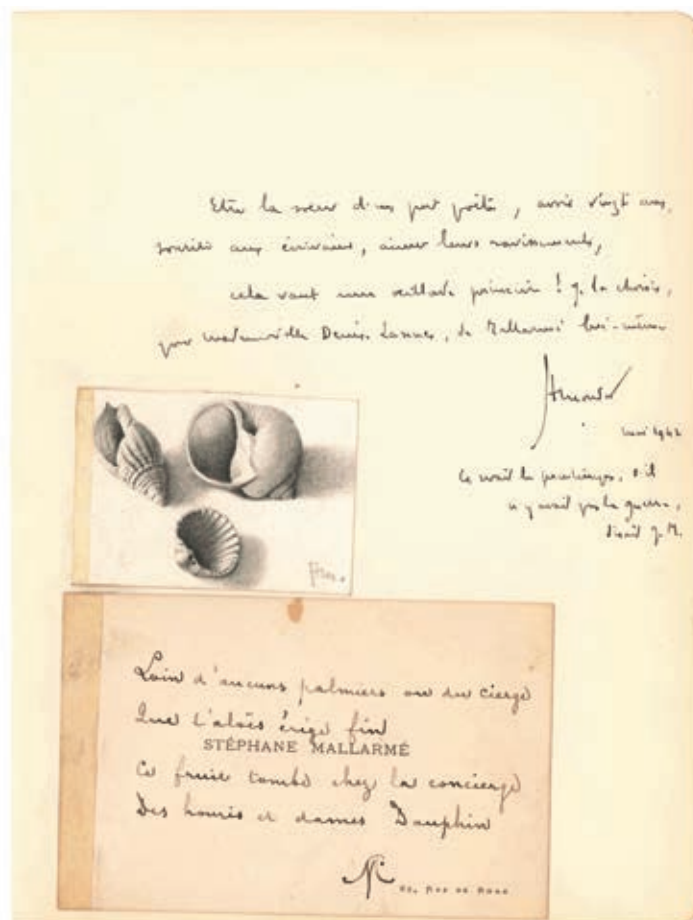 Etre la soeur d'un pur poète, avoir vingt ans,
sourire aux écrivains, aimer leurs ravissements,
cela vaut une princière !
pour Mademoiselle Denise, de Mallarmé lui-même
Hmondor
mai 1942
Ce serait le printemps, s'il
n'y avait pas la guerre,
disait
Loin d'aucuns palmiers ou du cierge
Que l'aloès érige fin
STÉPHANE MALLARMÉ
Ce fruit tombe chez la concierge
Des houris et dames Dauphin
89, RUE DE ROME